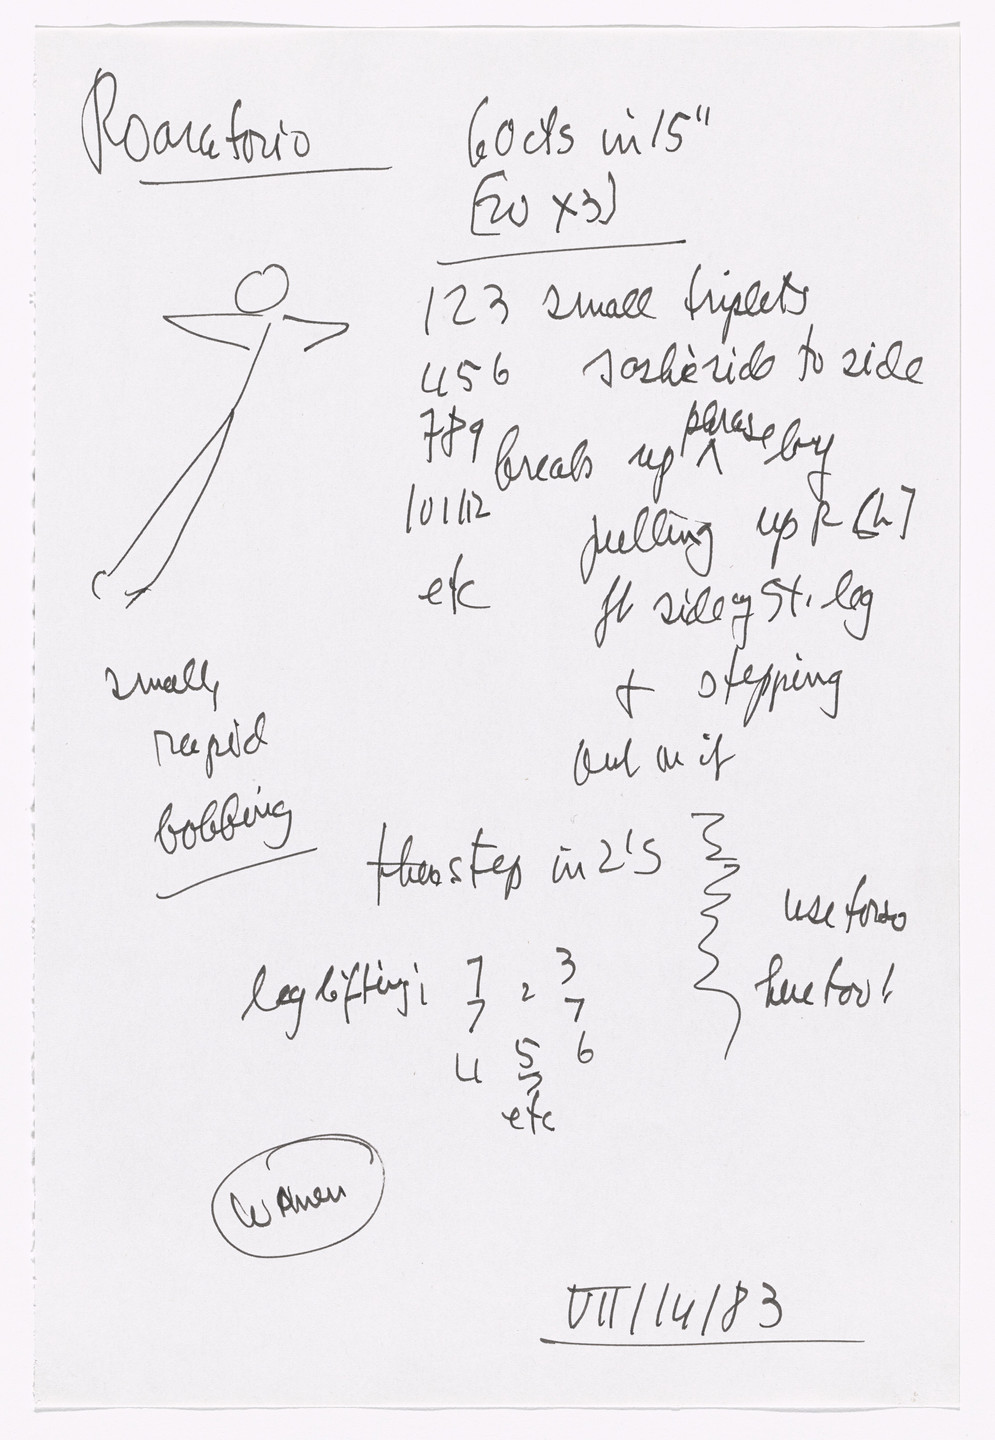 Roaratorio
60 cts in 15"
[20 x 3]
1 2 3 small triplets
4 5 6 side to side
7 8 9 breaks up phrase by
10 11 12 pulling up R [L]
etc ft side of St. leg
+ stepping
out on it
small,
rapid
bobbing
step in 2's
use torso
here too!
leg lifting;
1 2 3
4 5 6
etc
women
VII/14/83